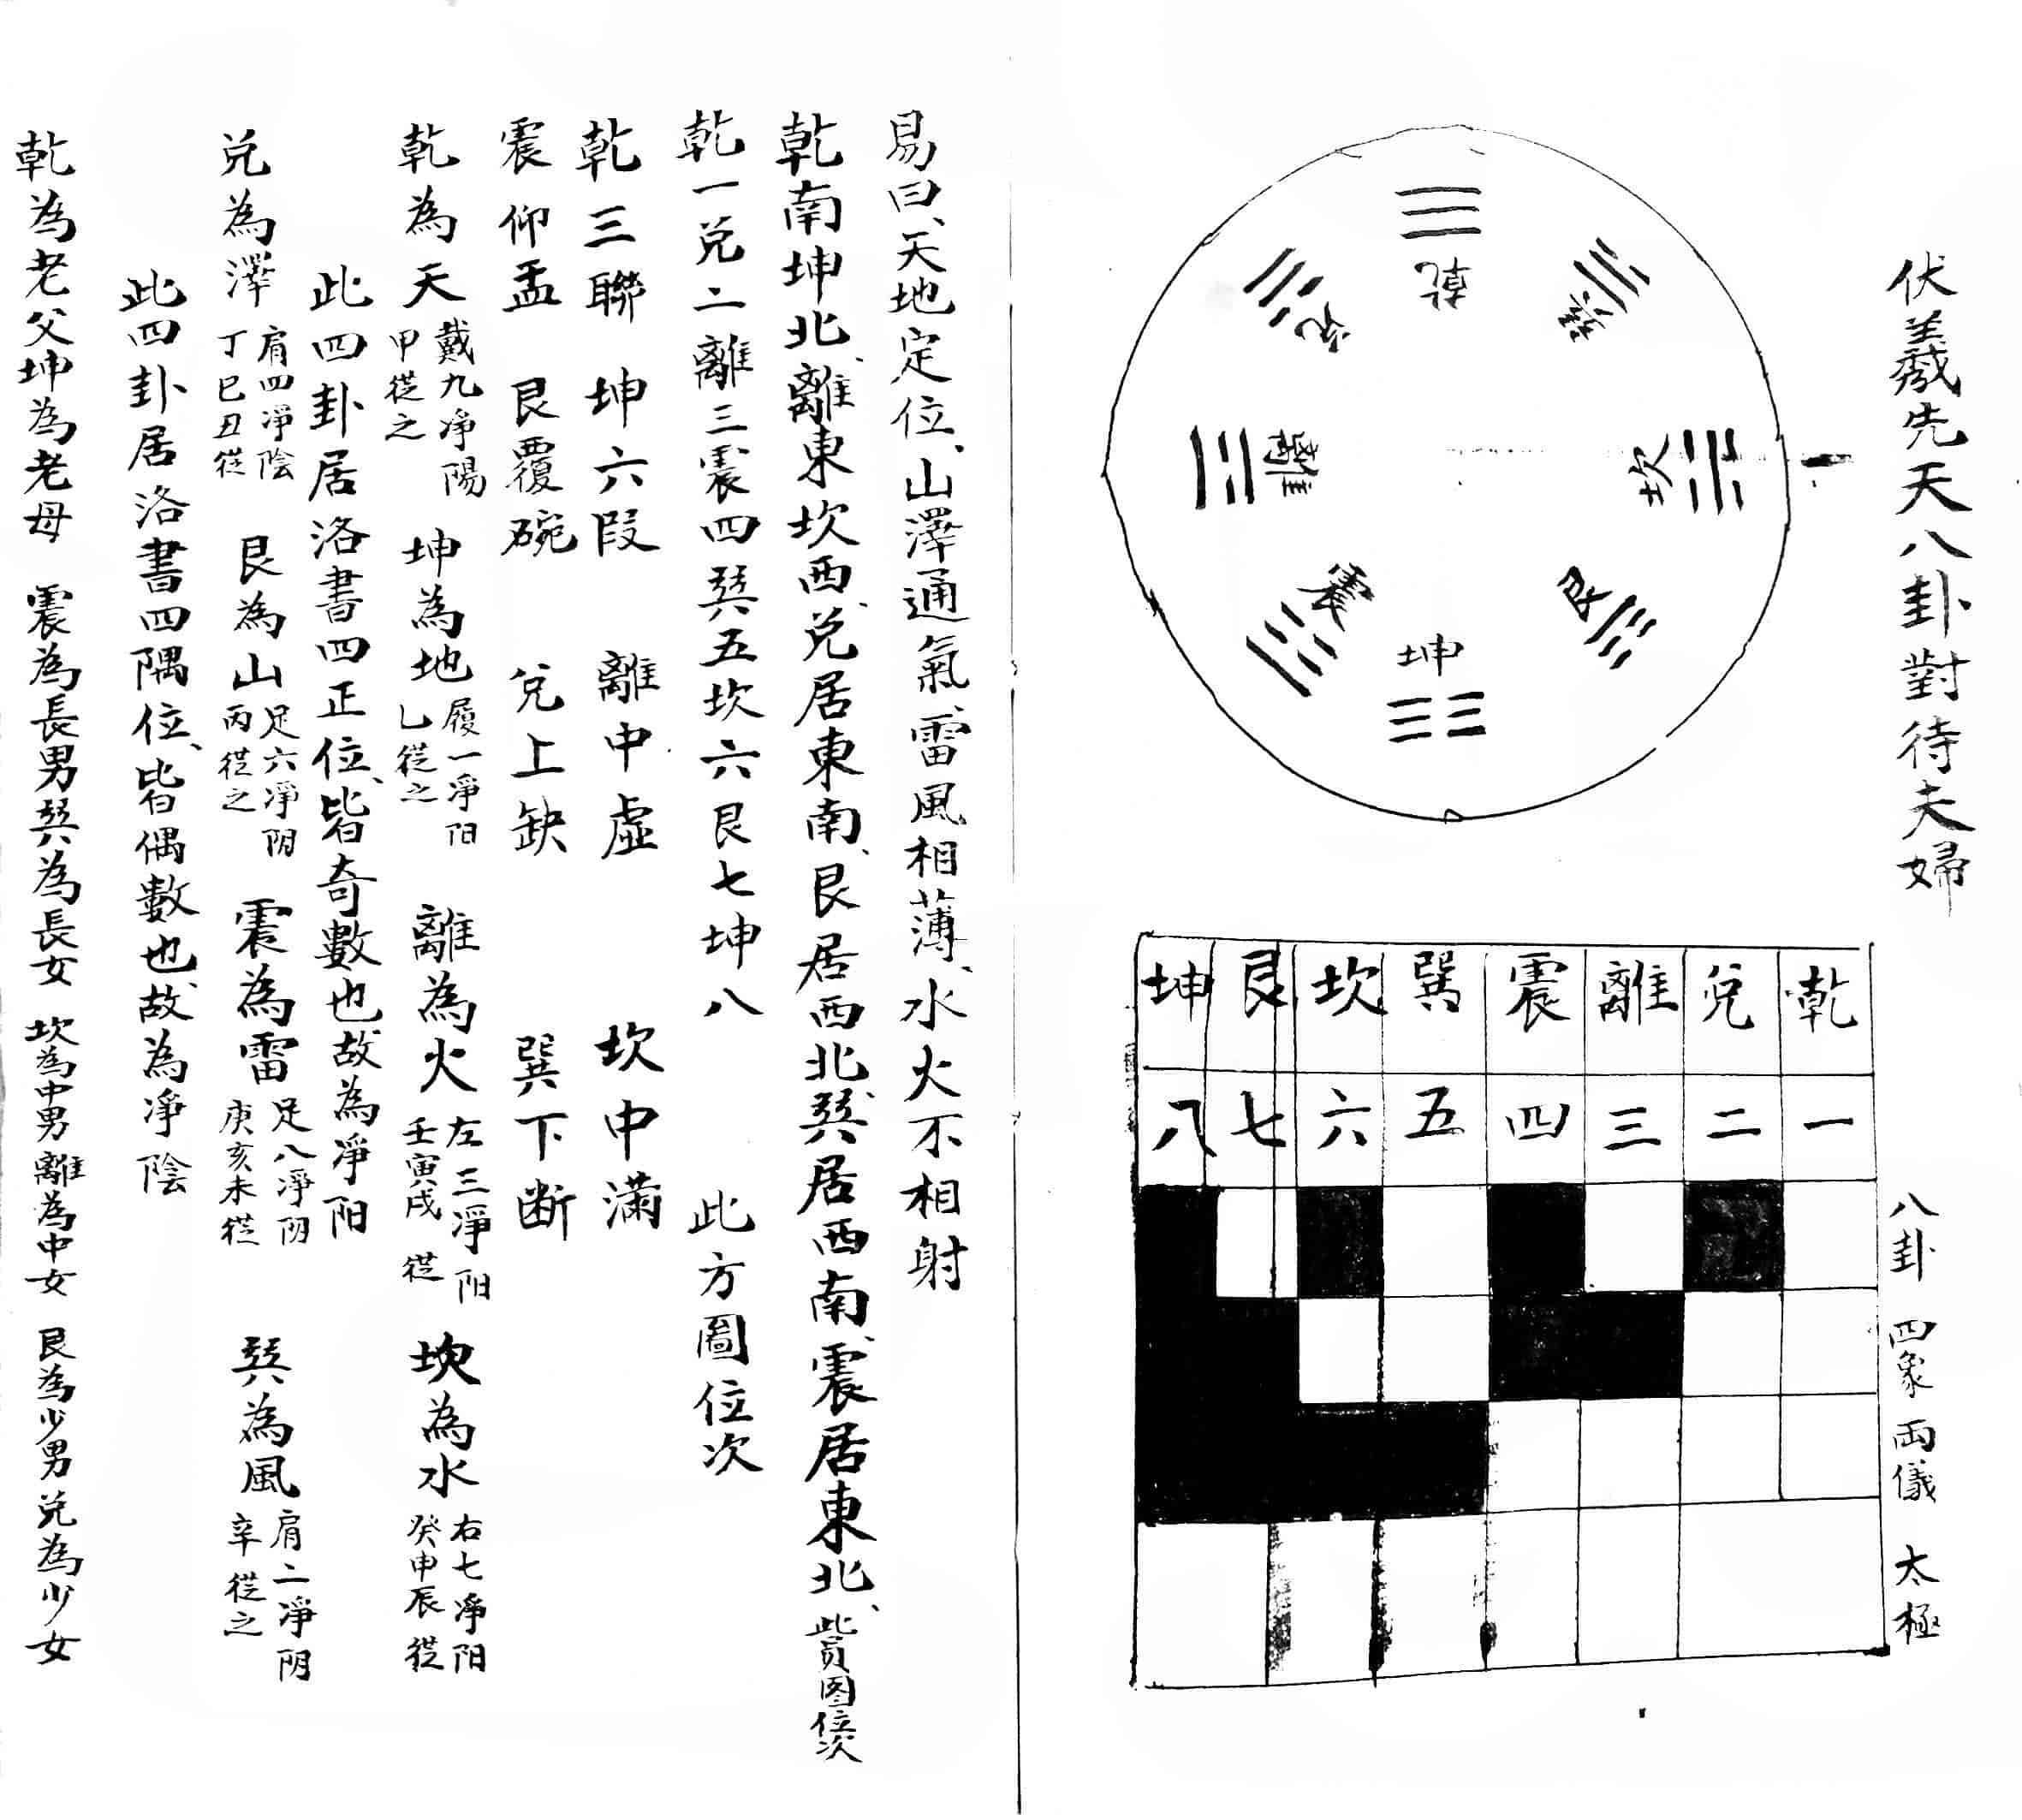 伏羲先天八卦對待夫婦
乾
兌
離
震
巽
坎
艮
坤
乾 兌 離 震 巽 坎 艮 坤
一 二 三 四 五 六 七 八
八卦
四象
両儀
太極
易曰、天地定位、山澤通氣、雷風相薄、水火不相射
乾南坤北、離東坎西、兌居東南、艮居西北、巽居西南、震居東北、此員图位次
乾一兌二離三震四巽五坎六艮七坤八 此方圖位次
乾三聯 坤六段 離中虛 坎中滿
震仰盂 艮覆碗 兌上缺 巽下断
乾為天 戴九淨陽 甲従之 坤為地 履一淨阳 乚従之 離為火 左三淨阳 壬寅戌 従 坎為水 右七淨阳 癸申辰従
此四卦居洛書四正位、皆奇數也、故為淨阳
兌為澤 肩四淨陰 丁巳丑従 艮為山 足六淨阴 丙従之 震為雷 足八淨阴 庚亥未従 巽為風 肩二淨阴 辛従之
此四卦居洛書四隅位、皆偶數也、故為淨陰
乾為老父坤為老母 震為長男巽為長女 坎為中男離為中女 艮為少男兌為少女